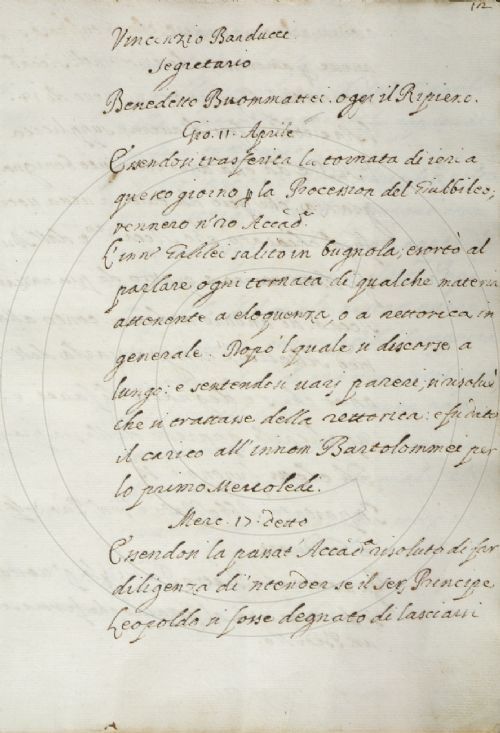 112
Vincenzio Barducci
Segretario
Benedetto Buommattei. oggi il Ripieno.
Gio. 11. Aprile
Essendosi trasferita la tornata di ieri a
questo giorno p la Procession del Giubbileo,
vennero nº 20 Accad.ci
L'inn.º Galilei salito in bugnola, esortò al
parlare ogni tornata di qualche materia
attenente a eloquenza, o a rettorica in
generale. Dopo 'l quale si discorse a
lungo: e sentendosi varj pareri, si risolvè
che si trattasse della rettorica: e fu dato
il carico all'innom. Bartolommei per
lo primo Mercoledì.
Merc. 17. detto
Essendosi la passat' Accad.ª risoluto di far
diligenza di 'ntender se il Ser. Principe
Leopoldo si fosse degnato di lasciarsi